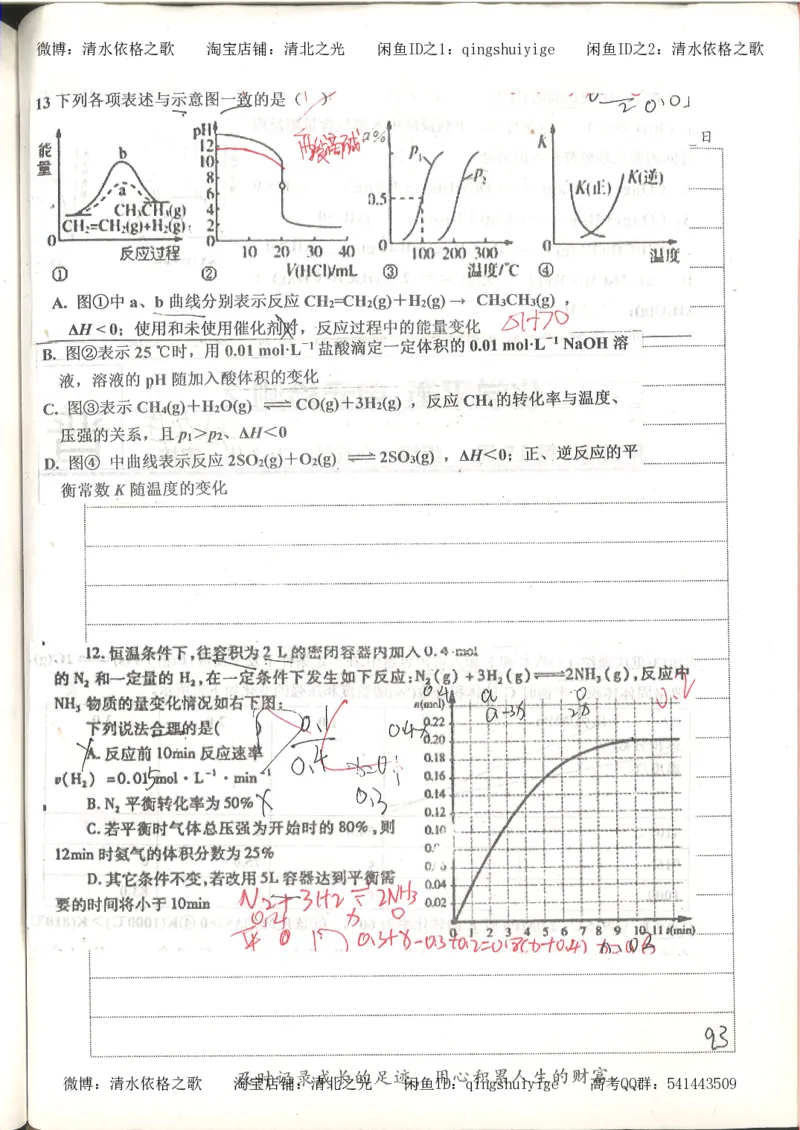 微博：清水依格之歌 淘宝店铺：清北之光 闲鱼ID之1：qingshuiyige 闲鱼ID之2：清水依格之歌
13 下列各项表述与示意图一致的是（ ）
日
能量
b
a
CH₃CH₃(g)
CH₂=CH₂(g)+H₂(g)
0
反应过程
①
pH
12
10
8
6
4
2
0
10 20 30 40
V(HCl)/mL
②
α%
p₁
p₂
0.5
0
100 200 300
温度/℃
③
K
K(正)
K(逆)
0
温度
④
A. 图①中 a、b 曲线分别表示反应 CH₂=CH₂(g)＋H₂(g)→ CH₃CH₃(g)，
ΔH＜0；使用和未使用催化剂时，反应过程中的能量变化
ΔH>0
B. 图②表示 25 ℃时，用 0.01 mol·L⁻¹ 盐酸滴定一定体积的 0.01 mol·L⁻¹ NaOH 溶
液，溶液的 pH 随加入酸体积的变化
C. 图③表示 CH₄(g)＋H₂O(g) ⇌ CO(g)＋3H₂(g)，反应 CH₄ 的转化率与温度、
压强的关系，且 p₁＞p₂、ΔH＜0
D. 图④ 中曲线表示反应 2SO₂(g)＋O₂(g) ⇌ 2SO₃(g)，ΔH＜0；正、逆反应的平
衡常数 K 随温度的变化
12. 恒温条件下,往容积为 2 L 的密闭容器内加入 0.4 mol
的 N₂ 和一定量的 H₂,在一定条件下发生如下反应：N₂(g)+3H₂(g)⇌2NH₃(g),反应中
0.4 a 0
NH₃ 物质的量变化情况如右下图：
a-3x 2x
下列说法合理的是(
0.1
0.4
A. 反应前 10min 反应速率
v(H₂) =0.015mol·L⁻¹·min⁻¹
0.3
B. N₂ 平衡转化率为 50%
C. 若平衡时气体总压强为开始时的 80%,则
12min 时氨气的体积分数为 25%
D. 其它条件不变,若改用 5L 容器达到平衡需
要的时间将小于 10min
n(mol)
0.22
0.20
0.18
0.16
0.14
0.12
0.10
0.04
0.02
0 1 2 3 4 5 6 7 8 9 10 11 t(min)
N₂+3H₂⇌2NH₃
93
及时记录成长的足迹，用心积累人生的财富
微博：清水依格之歌 淘宝店铺：清北之光 闲鱼ID：qingshuiyige 高考QQ群：541443509